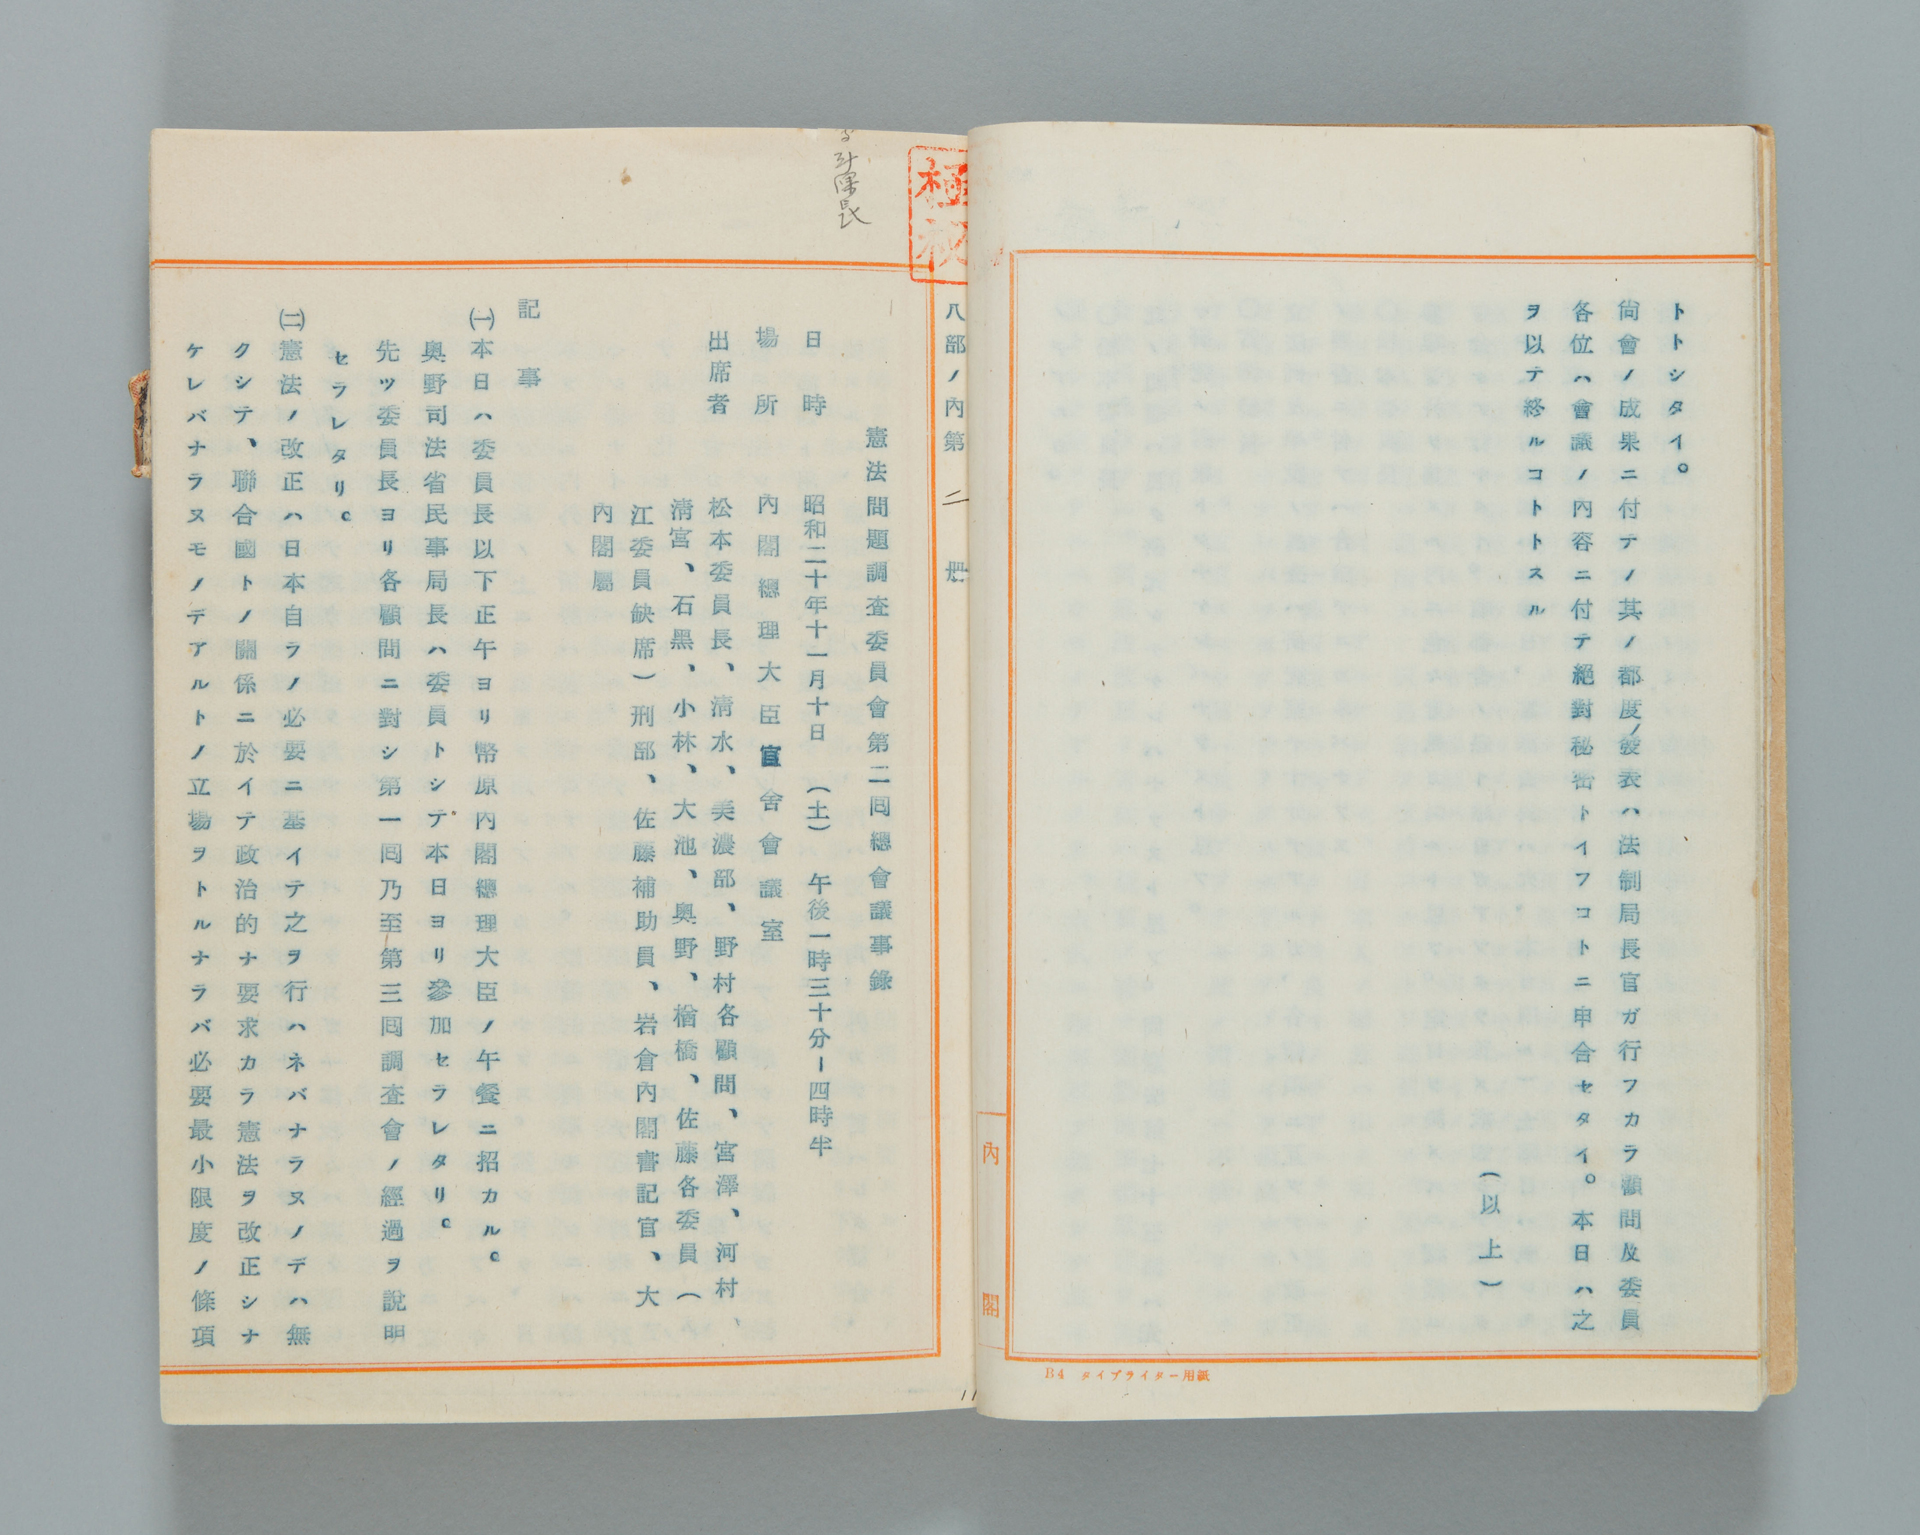 トトシタイ。
尙會ノ成果ニ付テノ其ノ都度ノ發表ハ法制局長官ガ行フカラ顧問及委員
各位ハ會議ノ內容ニ付テ絕對秘密トイフコトニ申合セタイ。本日ハ之
ヲ以テ終ルコトトスル
(以上)
B4 タイプライター用紙
內閣
極秘
八部ノ內第二号
憲法問題調査委員會第二囘總會議事錄
日時 昭和二十年十一月十日(土) 午後一時三十分ー四時半
場所 內閣總理大臣官舍會議室
出席者 松本委員長、淸水、美濃部、野村各顧問、宮澤、河村、
淸宮、石黑、小林、大池、奧野、楢橋、佐藤各委員(
江委員缺席)刑部、佐藤補助員、岩倉內閣書記官、大
內閣屬
記事
㈠本日ハ委員長以下正午ヨリ幣原內閣總理大臣ノ午餐ニ招カル。
奧野司法省民事局長ハ委員トシテ本日ヨリ參加セラレタリ。
先ツ委員長ヨリ各顧問ニ對シ第一囘乃至第三囘調査會ノ經過ヲ說明
セラレタリ。
㈡憲法ノ改正ハ日本自ラノ必要ニ基イテ之ヲ行ハネバナラヌノデハ無
クシテ、聯合國トノ關係ニ於イテ政治的ナ要求カラ憲法ヲ改正シナ
ケレバナラヌモノデアルトノ立場ヲトルナラバ必要最小限度ノ條項